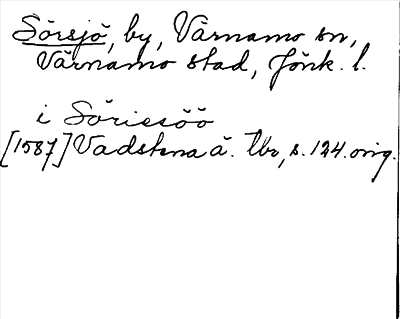 Sörsjö, by, Värnamo sn,
Värnamo stad, Jönk. l.
i Söriesöö
[1587] Vadstena ä. tbr, s. 124. orig.